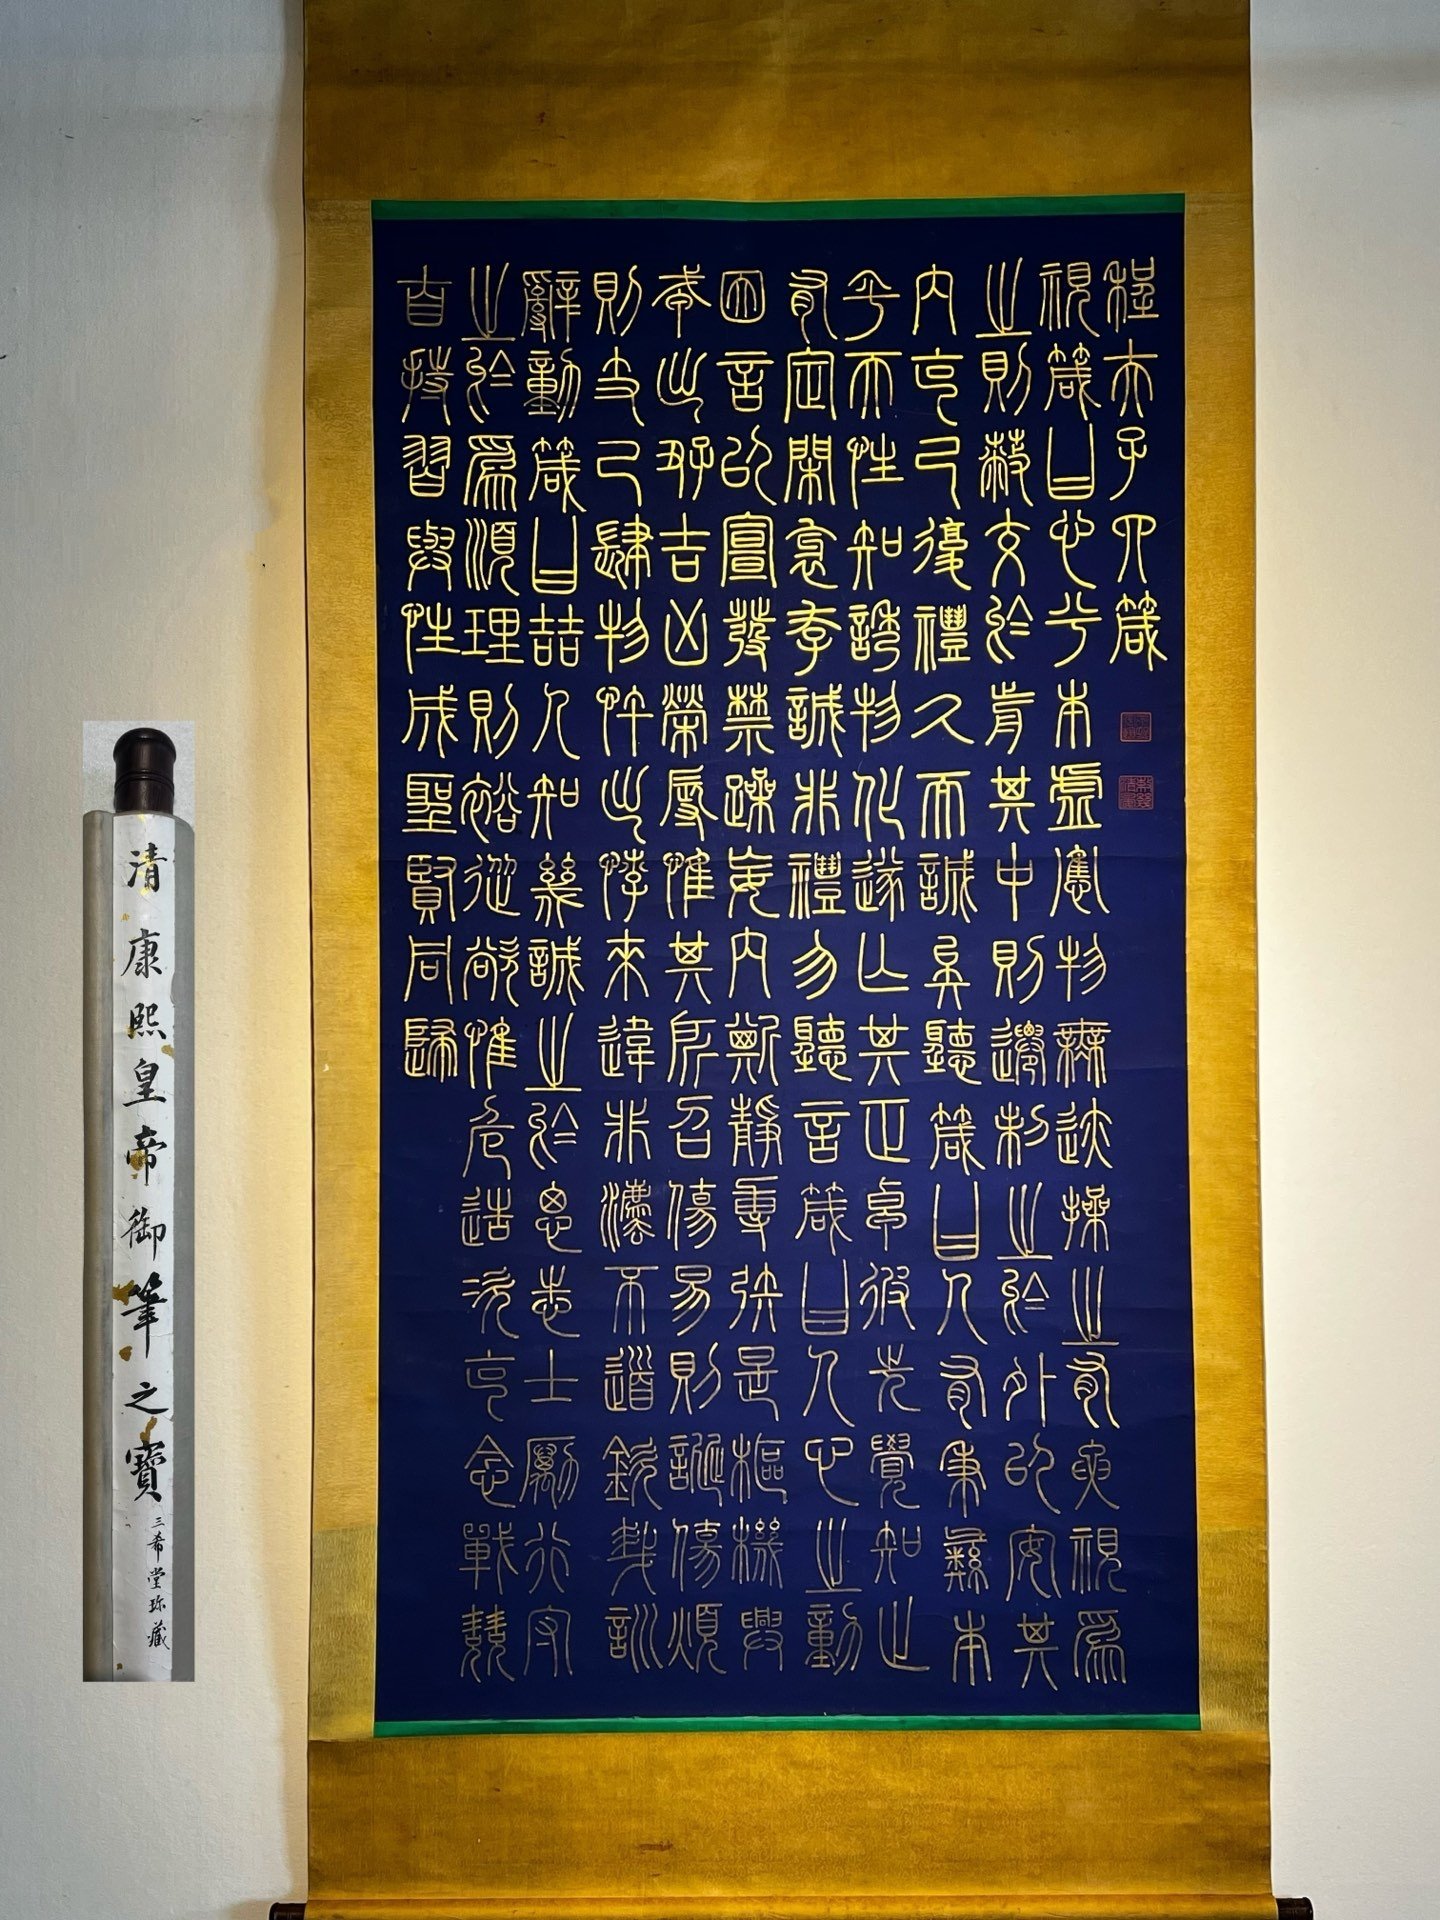 程夫子四箴
視箴曰心兮本虛應物無迹操之有要視為
之則蔽交於前其中則遷制之於外以安其
內克己復禮久而誠矣聽箴曰人有秉彝本
乎天性知誘物化遂亡其正卓彼先覺知止
有定閑邪存誠非禮勿聽言箴曰人心之動
因言以宣發禁躁妄內斯靜專矧是樞機興
戎出好吉凶榮辱惟其所召傷易則誕傷煩
則支己肆物忤出悖來違非法不道欽哉訓
辭動箴曰哲人知幾誠之於思志士勵行守
之於為順理則裕從欲惟危造次克念戰兢
自持習與性成聖賢同歸
清康熙皇帝御筆之寶
三希堂珍藏